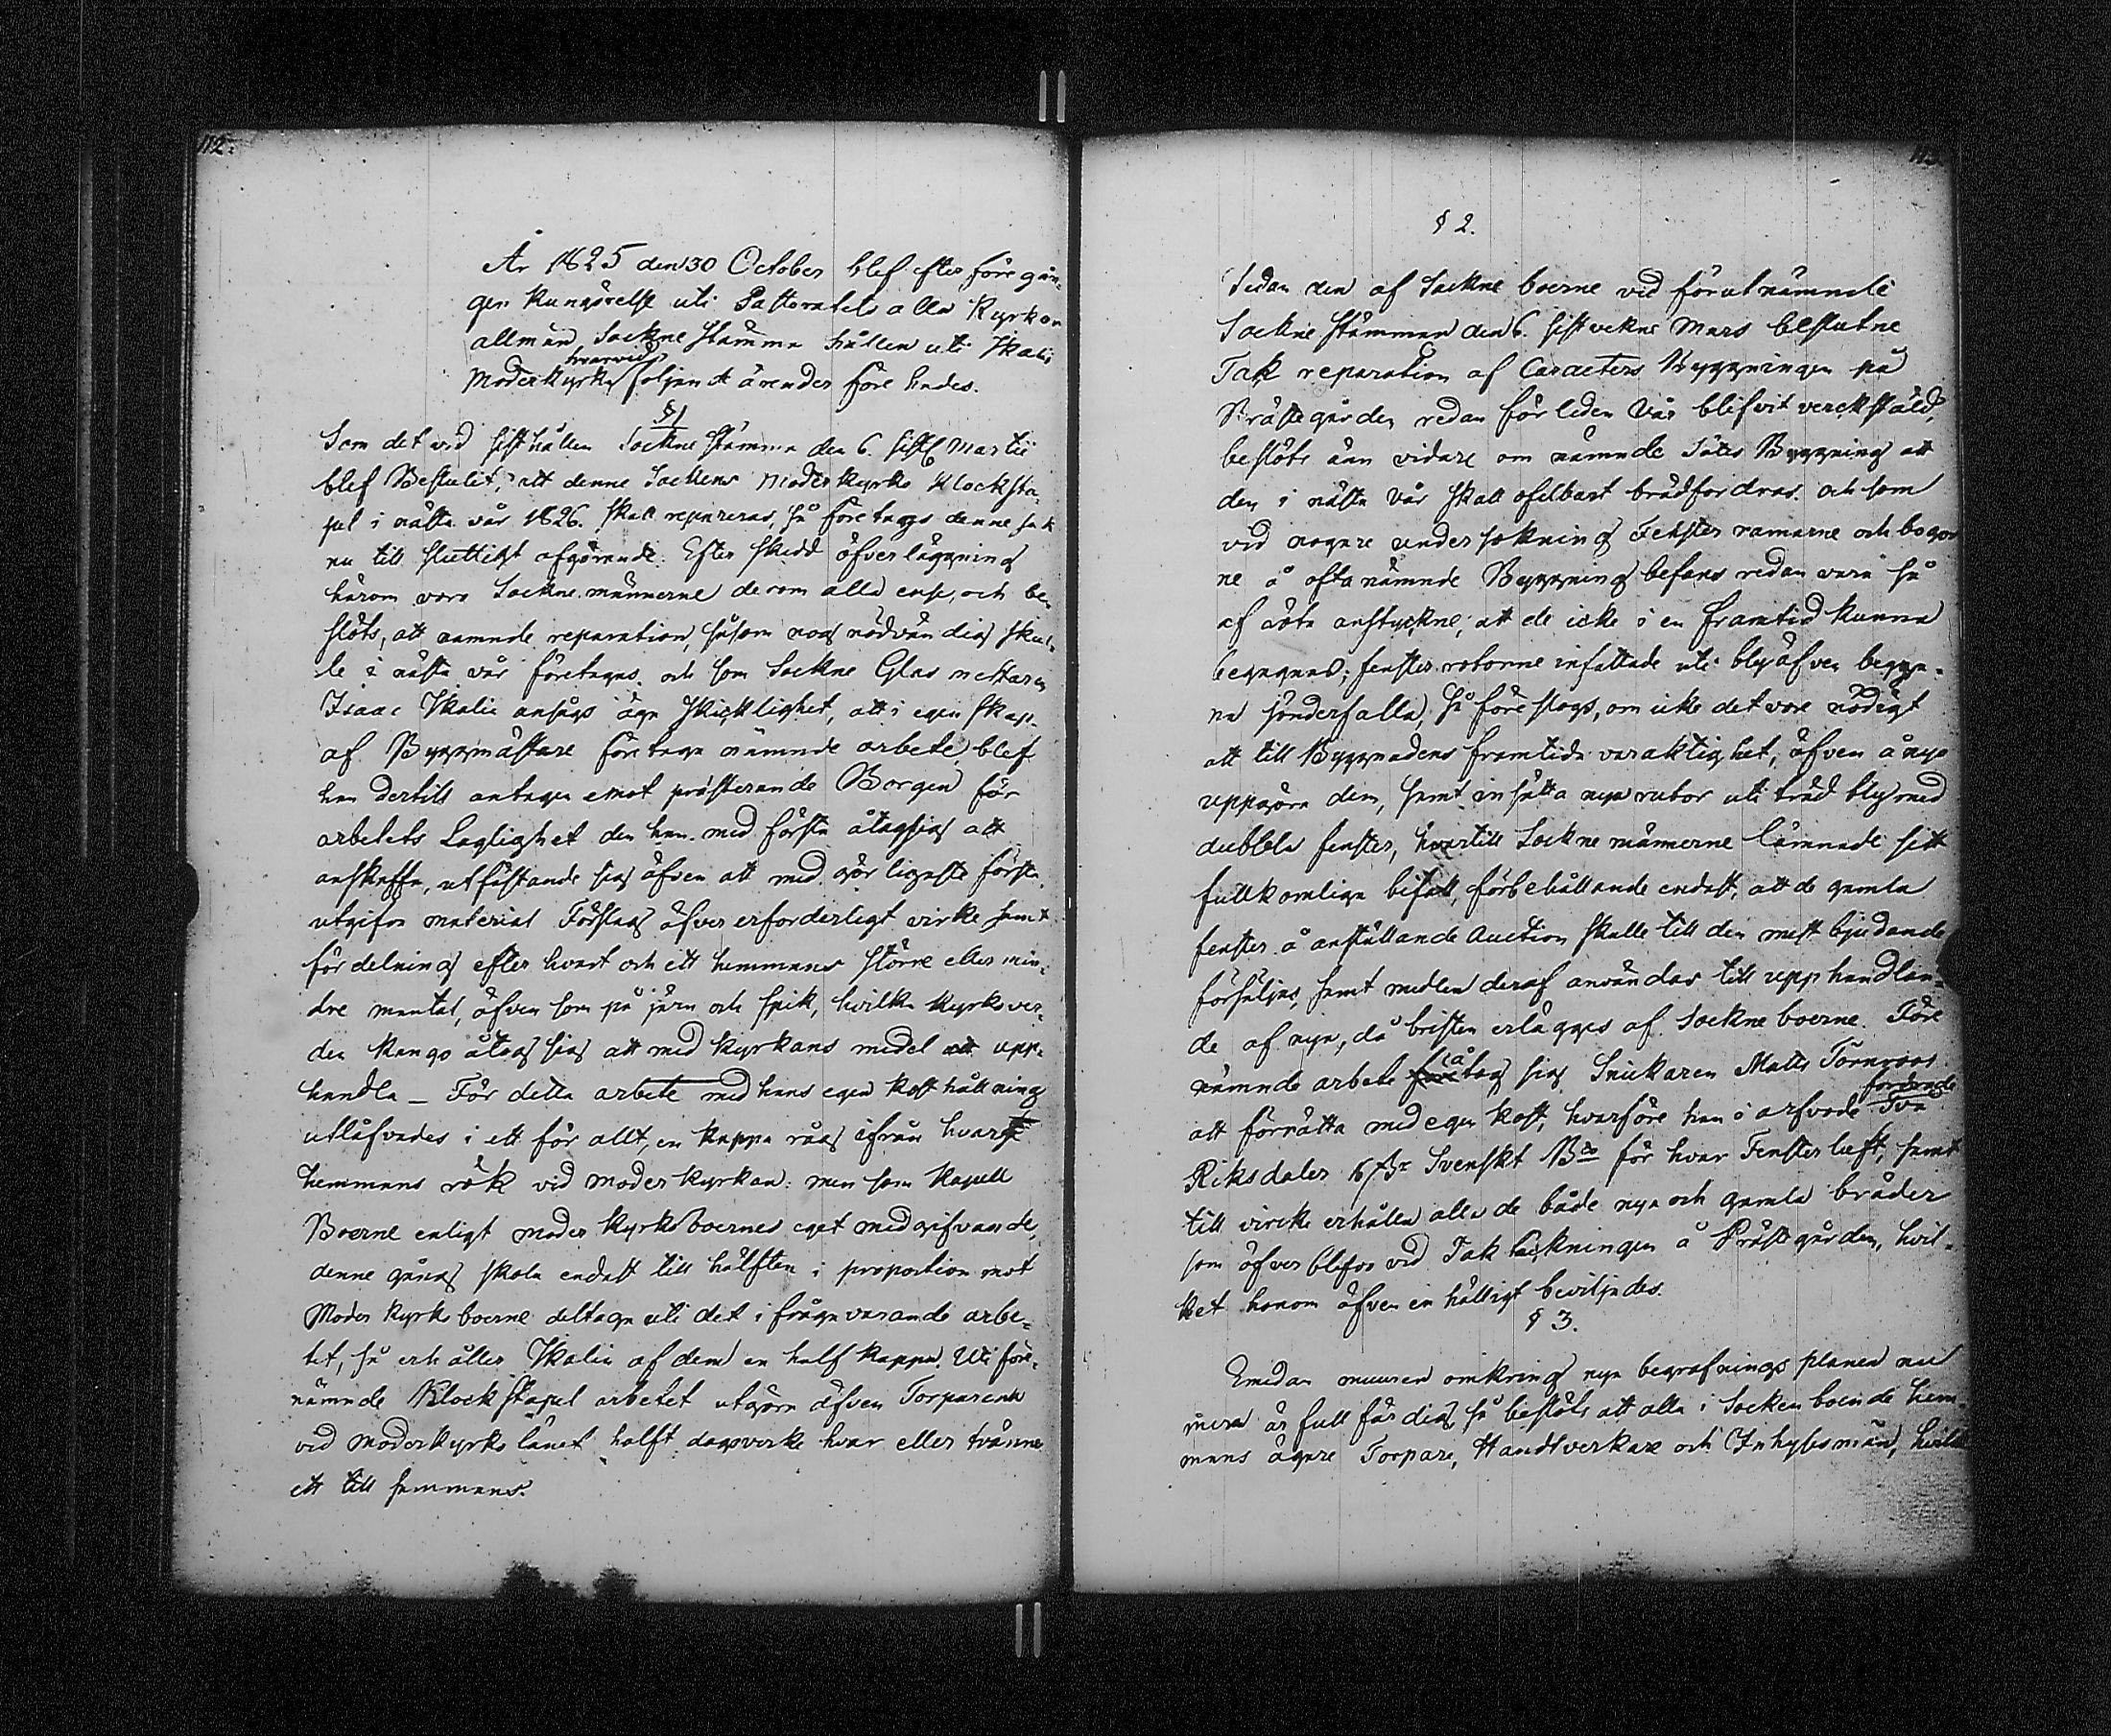 112.
År 1825 den 30 October blef efter föregån-
gen kungörelse uti Pastoratets alla Kyrkor
allmän Sockne stämma hållen uti Ikalis
Moderkyrka hvarvid följande ärender före hades.
§ 1
Som det vid sisthållen Sockne stämma den 6. sistl. Martii
blef Beslutit, att denne Sockens Moderkyrko Klocksta-
pel i nästa vår 1826. skall repareras, så företogs denne sak
nu till slutligt afgörande. Efter skedd öfverläggning
härom voro Sockne männerne derom alla ense, och be-
slöts, att nämnde reparation, såsom nog nödvändig skul-
le i nästa vår företagas. och som Sockne Glas mestaren
Isaac Ikalin ansågs äga skicklighet, att i egenskap
af Byggmästare företaga nämnde arbete, blef
han dertill antagen emot præsterande Borgen för
arbetets Laglighet den han med första åtog sig att
anskaffa, utfästande sig äfven att med görligaste första
utgifva material Förslag öfver erforderligt virke samt
fördelning efter hvart och ett hemmans större eller min-
dre mantal, äfven som på järn och spik, hvilka kyrkover-
den Kango åtog sig att med kyrkans medel att upp-
handla – För detta arbete med hans egen kost hållning
utlåfvades i ett för allt, en kappa råg ifrån hvart
hemmans rök vid moderkyrkan: men som Kapell
Boerne enligt moder kyrkoboernes eget medgifvande,
denne gång skola endast till hälften i proportion mot
Moder kyrkoboerne deltaga uti det i fråga varande arbe-
tet, så erhåller Ikalin af dem en half kappa. Uti före-
nämnde Klockstapel arbetet utgöra äfven Torparena
vid moderkyrko länet halft dagsverke hvar eller tvänne
ett till sammans.
§ 2.
Sedan den af Sockne boerne vid förutnämnde
Sockne stämman den 6. sistvekne Mars beslutne
Tak reparation af Caracters Byggningen på
Prästegården redan förleden Vår blifvit verckstäld,
beslöts än vidare om nämnde Sätes Byggning att
den i nästa Vår skall ofelbart brädfordras. och som
vid nogare undersökning Fenster ramarne och bogar
ne å oftanämnde Byggning befans redan vara så
af röta anstuckne, att de icke i en framtid kunna
begagnas; fenster rutorne infattade uti bly äfven begyn-
na sönderfalla, så föreslogs, om icke det vore nödigt
att till Byggnadens framtida varaktighet, äfven å nyo
uppgöra dem, samt insätta nya rutor uti träd bly med
dubbla fenster, hvartill Sockne männerne lämnade sitt
fullkomliga bifall, förbehållande endast, att de gamla
fenster å anställande Auction skulle till den mest bjudande
försäljas, samt medlen deraf användas till upphandlan-
de af nya, då bristen erlägges af Sockne boerne. Före
nämnde arbete åtog sig Snickaren Matts Törnroos
att förrätta med egen kost, hvarföre han i arfvode fordrade Två
Riksdaler 16 s:r Svenskt B:co för hvar Fenster luft, samt
till vircke erhålla alla de både nya och gamla bräder
som öfver blefvo vid Tak läckningen å Prästegården, hvil-
ket honom äfven enhälligt beviljades.
§ 3.
Emedan muuren omkring nya begrafnings planen nu
mera är full färdig, så beslöts att alla i Socken boende hem-
mans ägare Torpare, Handtverkare och Inhyses män, hvilka